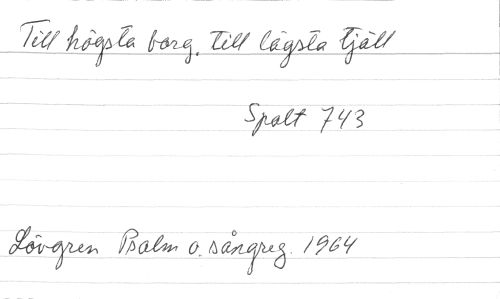 Till högsta borg, till lägsta tjäll
Spalt 743
Lövgren Psalm o. sångreg. 1964